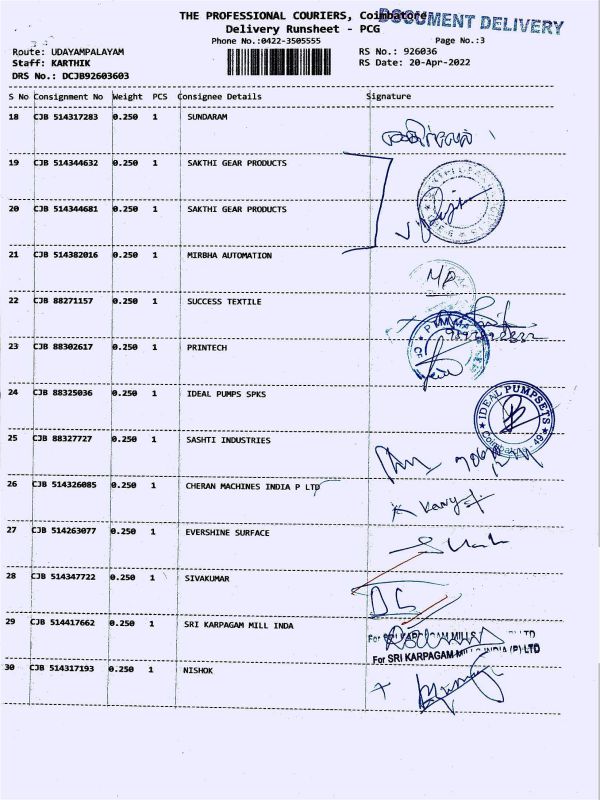 THE PROFESSIONAL COURIERS, Coimbatore
DOCUMENT DELIVERY
Delivery Runsheet - PCG
Phone No.:0422-3505555
Page No.:3
Route: UDAYAMPALAYAM
RS No.: 926036
Staff: KARTHIK
RS Date: 20-Apr-2022
DRS No.: DCJB92603603
S No Consignment No Weight PCS Consignee Details Signature
18 CJB 514317283 0.250 1 SUNDARAM
19 CJB 514344632 0.250 1 SAKTHI GEAR PRODUCTS
20 CJB 514344681 0.250 1 SAKTHI GEAR PRODUCTS
21 CJB 514382016 0.250 1 MIRBHA AUTOMATION
22 CJB 88271157 0.250 1 SUCCESS TEXTILE
23 CJB 88302617 0.250 1 PRINTECH
24 CJB 88325036 0.250 1 IDEAL PUMPS SPKS
IDEAL PUMPSETS
25 CJB 88327727 0.250 1 SASHTI INDUSTRIES
26 CJB 514326085 0.250 1 CHERAN MACHINES INDIA P LTD
27 CJB 514263077 0.250 1 EVERSHINE SURFACE
28 CJB 514347722 0.250 1 SIVAKUMAR
29 CJB 514417662 0.250 1 SRI KARPAGAM MILL INDA
For SRI KARPAGAM MILLS INDIA (P) LTD
30 CJB 514317193 0.250 1 NISHOK